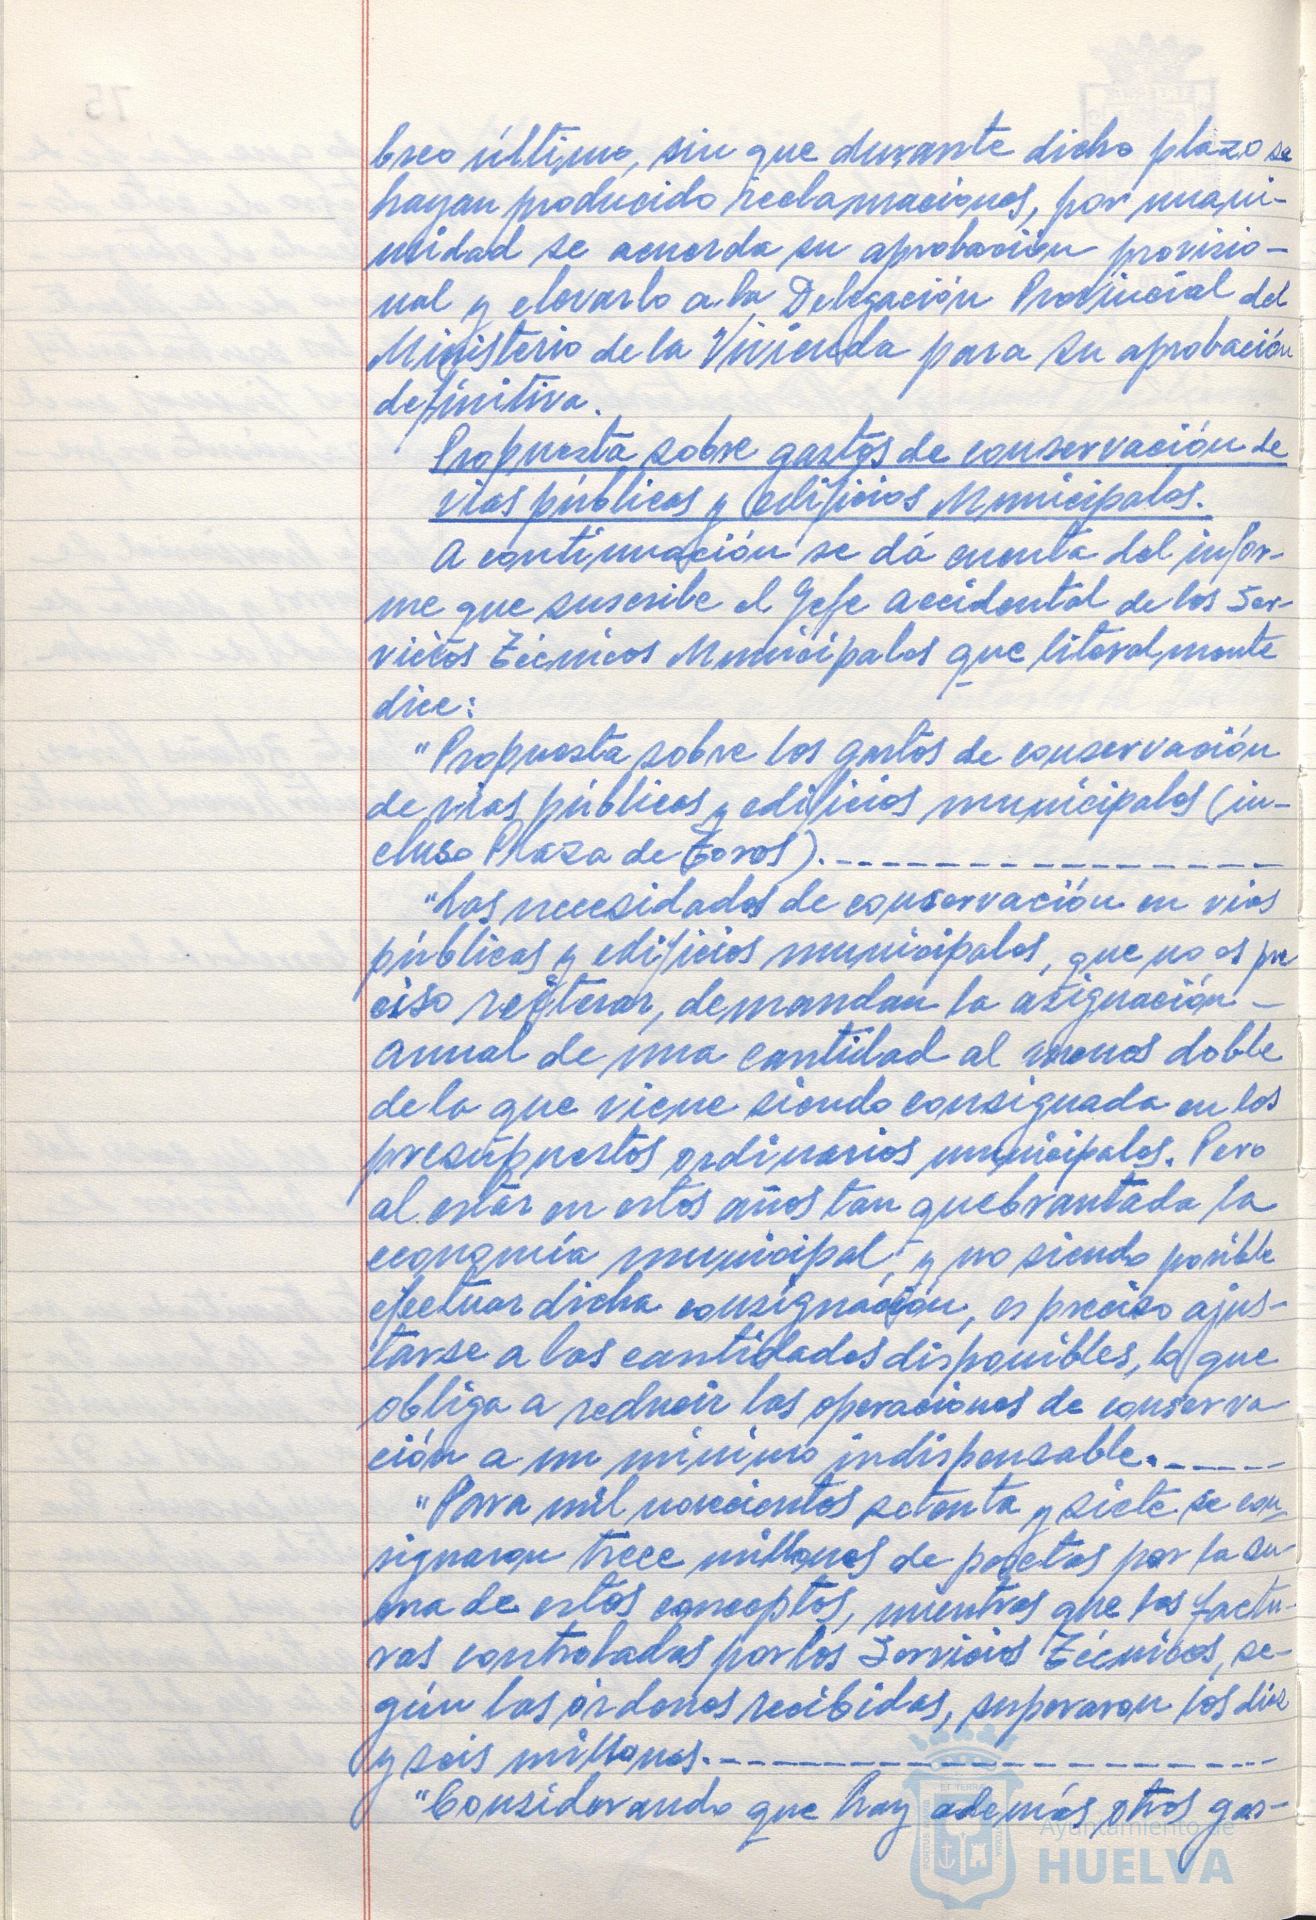 breo último, sin que durante dicho plazo se
hayan producido reclamaciones, por unani-
midad se acuerda su aprobación provisio-
nal y elevarlo a la Delegación Provincial del
Ministerio de la Vivienda para su aprobación
definitiva.
Propuesta sobre gastos de conservación de
vias públicas y edificios Municipales.
A continuación se dá cuenta del infor-
me que suscribe el Jefe accidental de los Ser-
vicios Técnicos Municipales que literalmente
dice:
"Propuesta sobre los gastos de conservación
de vias públicas y edificios municipales (in-
cluso Plaza de Toros).
"Las necesidades de conservación en vias
públicas y edificios municipales, que no es pre
ciso reiterar, demandan la asignación -
anual de una cantidad al menos doble
de la que viene siendo consignada en los
presupuestos ordinarios municipales. Pero
al estar en estos años tan quebrantada la
economía municipal y no siendo posible
efectuar dicha consignación, es preciso ajus-
tarse a las cantidades disponibles, lo que
obliga a reducir las operaciones de conserva
ción a un mínimo indispensable.
"Para mil novecientos setenta y siete se con-
signaron trece millones de pesetas por la su-
ma de estos conceptos, mientras que las factu-
ras controladas por los Servicios Técnicos, se-
gún las órdenes recibidas, superaron los diez
y seis millones.
"Considerando que hay además otros gas-
Ayuntamiento de
HUELVA
75